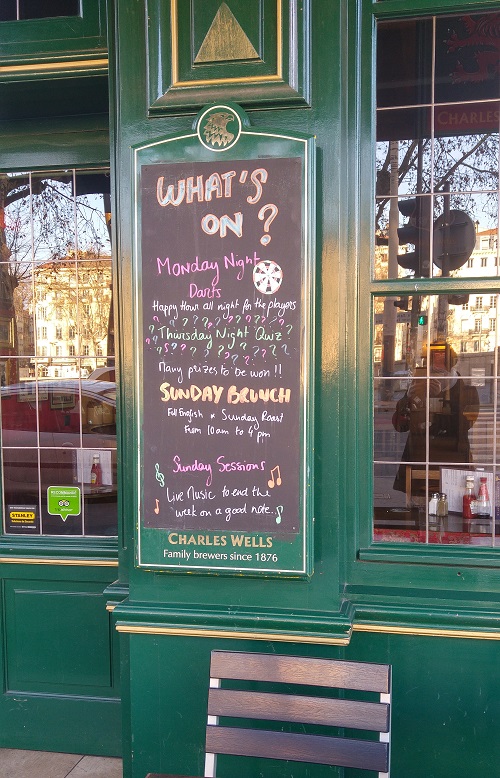 WHAT'S
ON?
Monday Night
Darts
Happy Hour all night for the players
? ? ? ? ? ? ? ?
? Thursday Night Quiz?
? ? ? ? ? ? ? ? ? ?
Many prizes to be won !!
SUNDAY BRUNCH
Full English * Sunday Roast
From 10am to 4pm
Sunday Sessions
Live Music to end the
week on a good note.
CHARLES WELLS
Family brewers since 1876
CHARLES
STANLEY